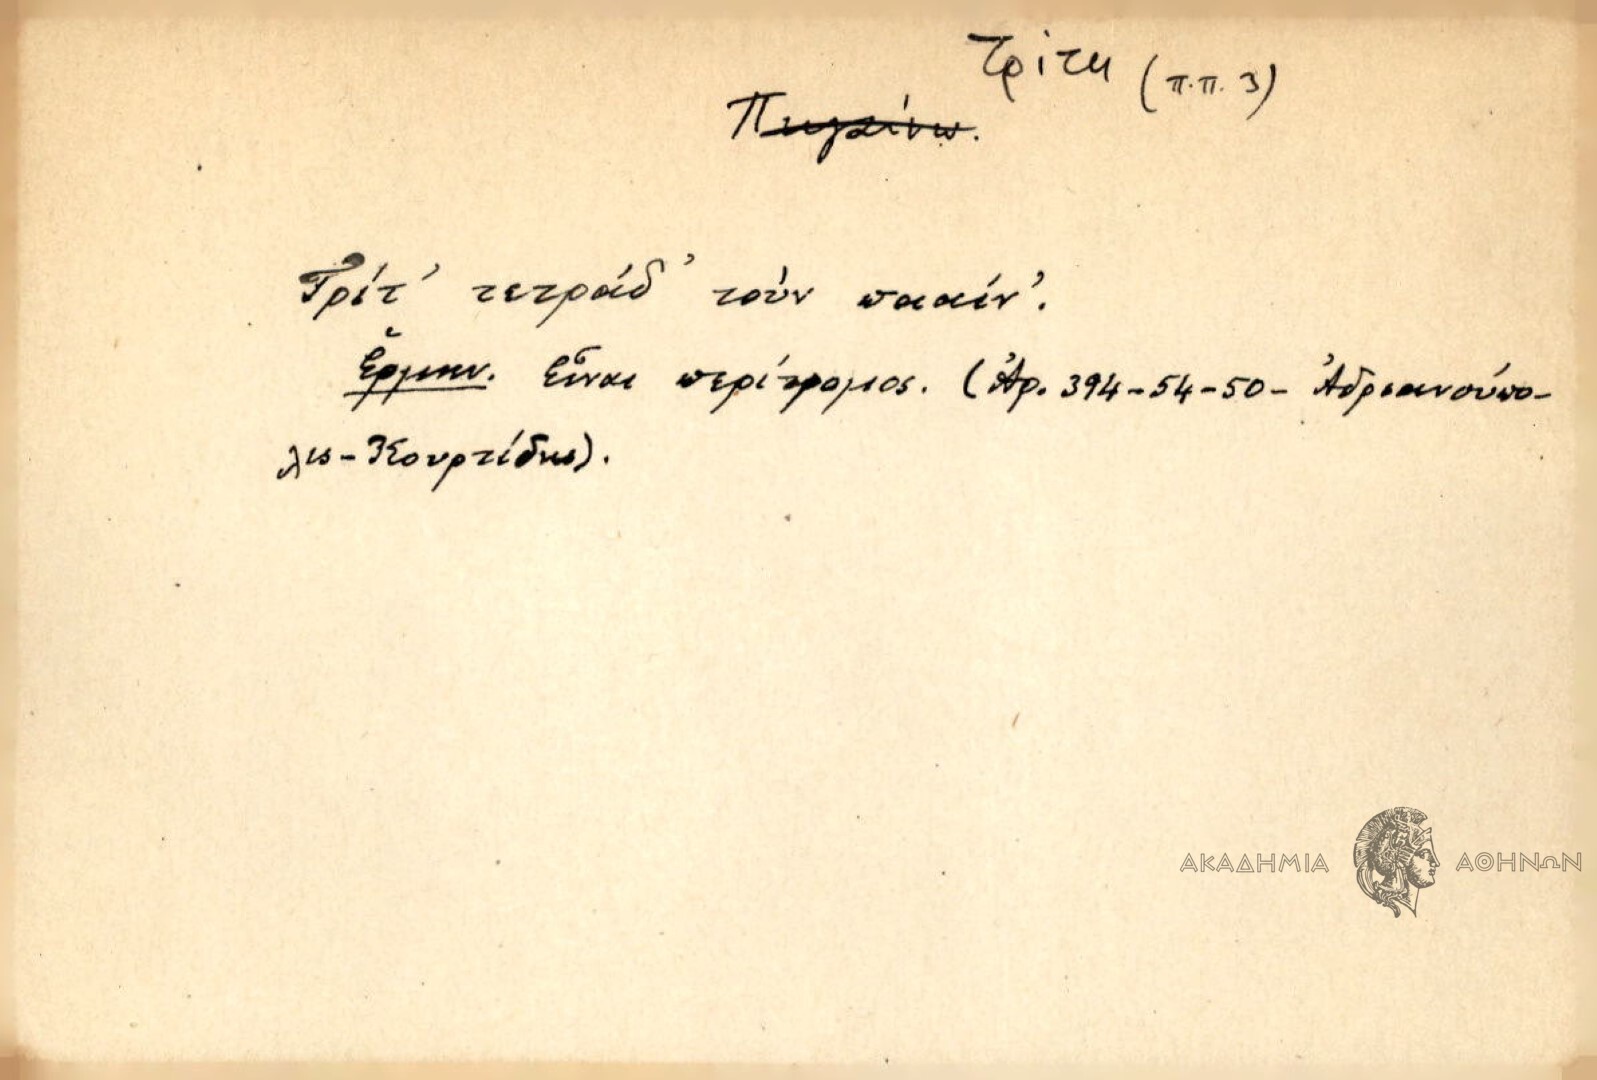 Τρίτη (π.π. 3)
Πηγαίνω.
Τρίτ' τετράδ' τούν πααίν'.
Ἑρμην. Εἶναι περίτρομος. (Ἀρ. 394-54-50- Ἀδριανούπο-
λις-Κουρτίδης).
ΑΚΑΔΗΜΙΑ ΑΘΗΝΩΝ